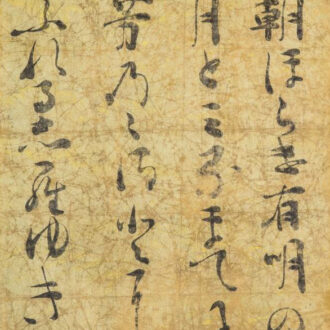 朝ほらけ有明の
月とミるまてに
芳乃ゝ佐とに
ふれる志羅ゆき